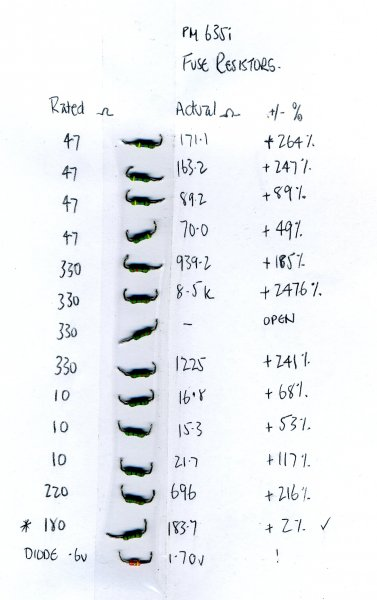 PM 635i
FUSE RESISTORS.
Rated Ω Actual Ω +/- %
47 171.1 +264%
47 163.2 +247%
47 89.2 +89%
47 70.0 +49%
330 939.2 +185%
330 8.5k +2476%
330 - OPEN
330 1225 +241%
10 16.8 +68%
10 15.3 +53%
10 21.7 +117%
220 696 +216%
* 180 183.7 +2% ✓
DIODE .6v 1.70v !